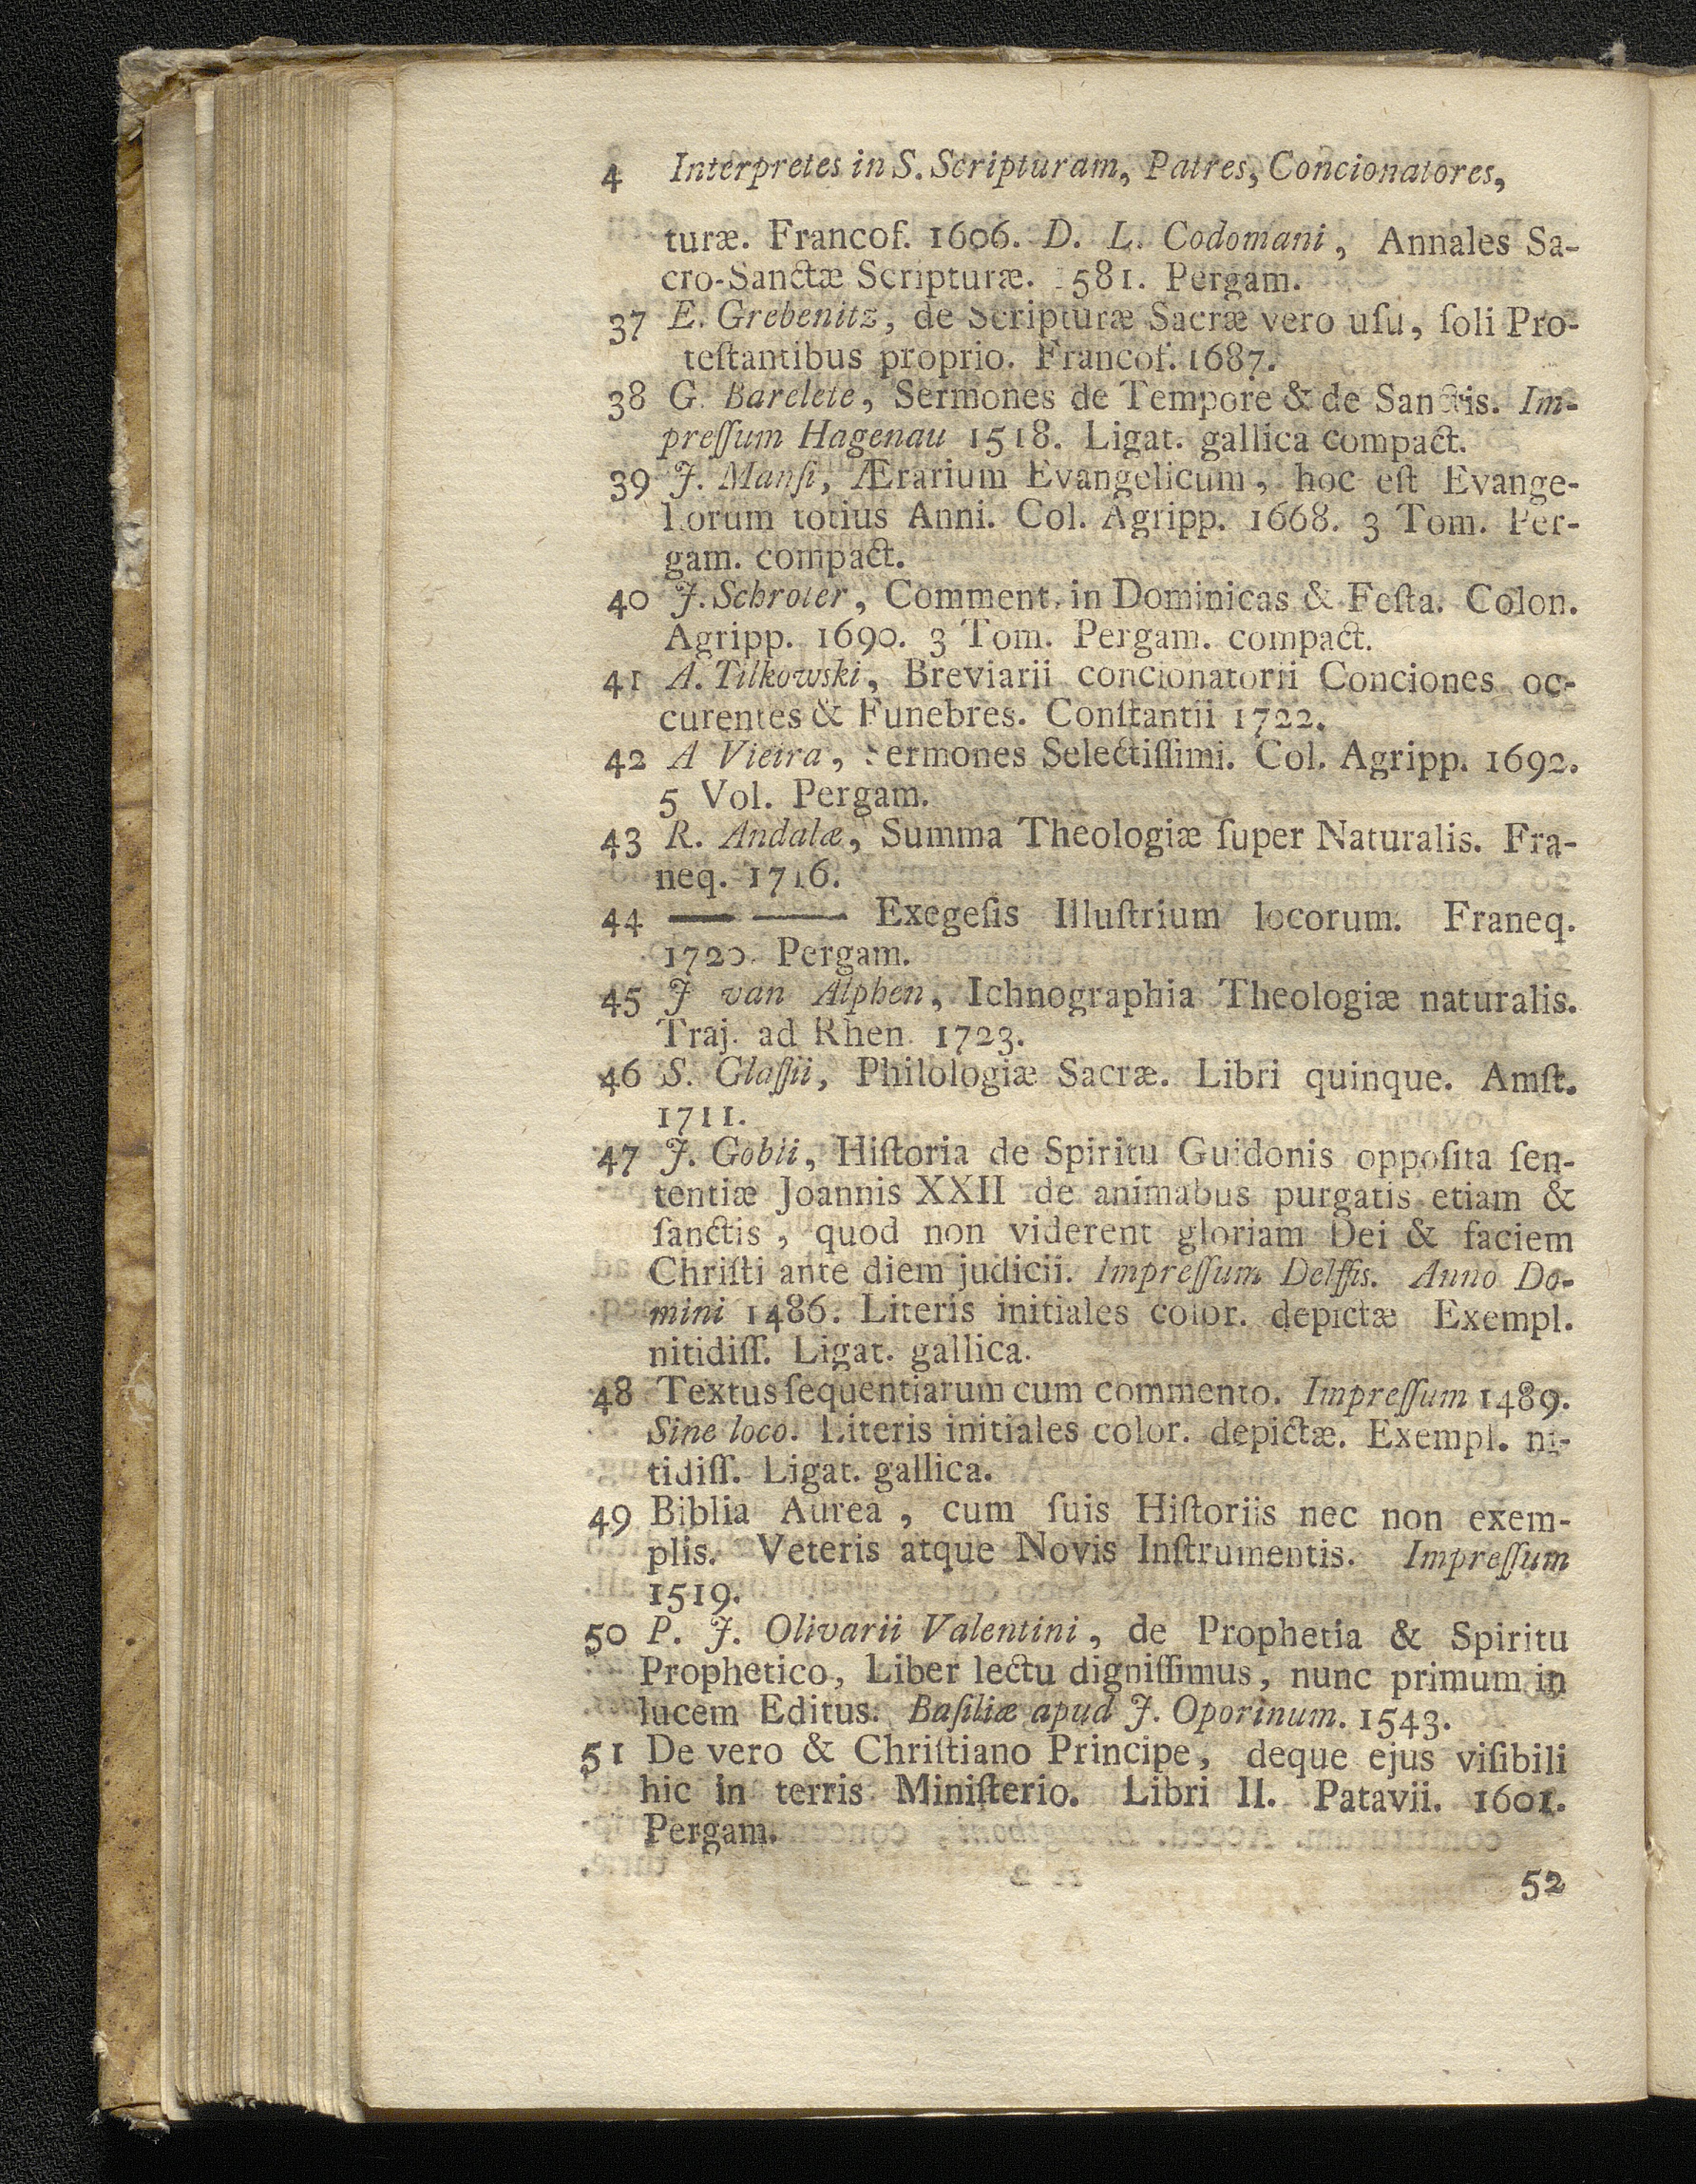 4 Interpretes in S. Scripturam, Patres, Concionatores,
turæ. Francof. 1606. D. L. Codomani, Annales Sa-
cro-Sanctæ Scripturæ. 1581. Pergam.
37 E. Grebenitz, de Scripturæ Sacræ vero uſu, ſoli Pro-
teſtantibus proprio. Francof. 1687.
38 G. Barelete, Sermones de Tempore & de Sanctis. Im-
preſſum Hagenau 1518. Ligat. gallica compact.
39 J. Manſi, Ærarium Evangelicum, hoc eſt Evange-
liorum totius Anni. Col. Agripp. 1668. 3 Tom. Per-
gam. compact.
40 J. Schroter, Comment. in Dominicas & Feſta. Colon.
Agripp. 1690. 3 Tom. Pergam. compact.
41 A. Tilkowski, Breviarii concionatorii Conciones oc-
curentes & Funebres. Conſtantii 1722.
42 A Vieira, Sermones Selectiſſimi. Col. Agripp. 1692.
5 Vol. Pergam.
43 R. Andalæ, Summa Theologiæ ſuper Naturalis. Fra-
neq. 1716.
44 — — Exegeſis Illuſtrium locorum. Franeq.
1720. Pergam.
45 J van Alphen, Ichnographia Theologiæ naturalis.
Traj. ad Rhen. 1723.
46 S. Glaſſii, Philologiæ Sacræ. Libri quinque. Amſt.
1711.
47 J. Gobii, Hiſtoria de Spiritu Guidonis oppoſita ſen-
tentiæ Joannis XXII de animabus purgatis etiam &
ſanctis, quod non viderent gloriam Dei & faciem
Chriſti ante diem judicii. Impreſſum Delffis. Anno Do-
mini 1486. Literis initiales color. depictæ Exempl.
nitidiſſ. Ligat. gallica.
48 Textus ſequentiarum cum commento. Impreſſum 1489.
Sine loco. Literis initiales color. depictæ. Exempl. ni-
tidiſſ. Ligat. gallica.
49 Biblia Aurea, cum ſuis Hiſtoriis nec non exem-
plis. Veteris atque Novis Inſtrumentis. Impreſſum
1519.
50 P. J. Olivarii Valentini, de Prophetia & Spiritu
Prophetico, Liber lectu digniſſimus, nunc primum in
lucem Editus. Baſiliæ apud J. Oporinum. 1543.
51 De vero & Chriſtiano Principe, deque ejus viſibili
hic in terris Miniſterio. Libri II. Patavii. 1601.
Pergam.
52